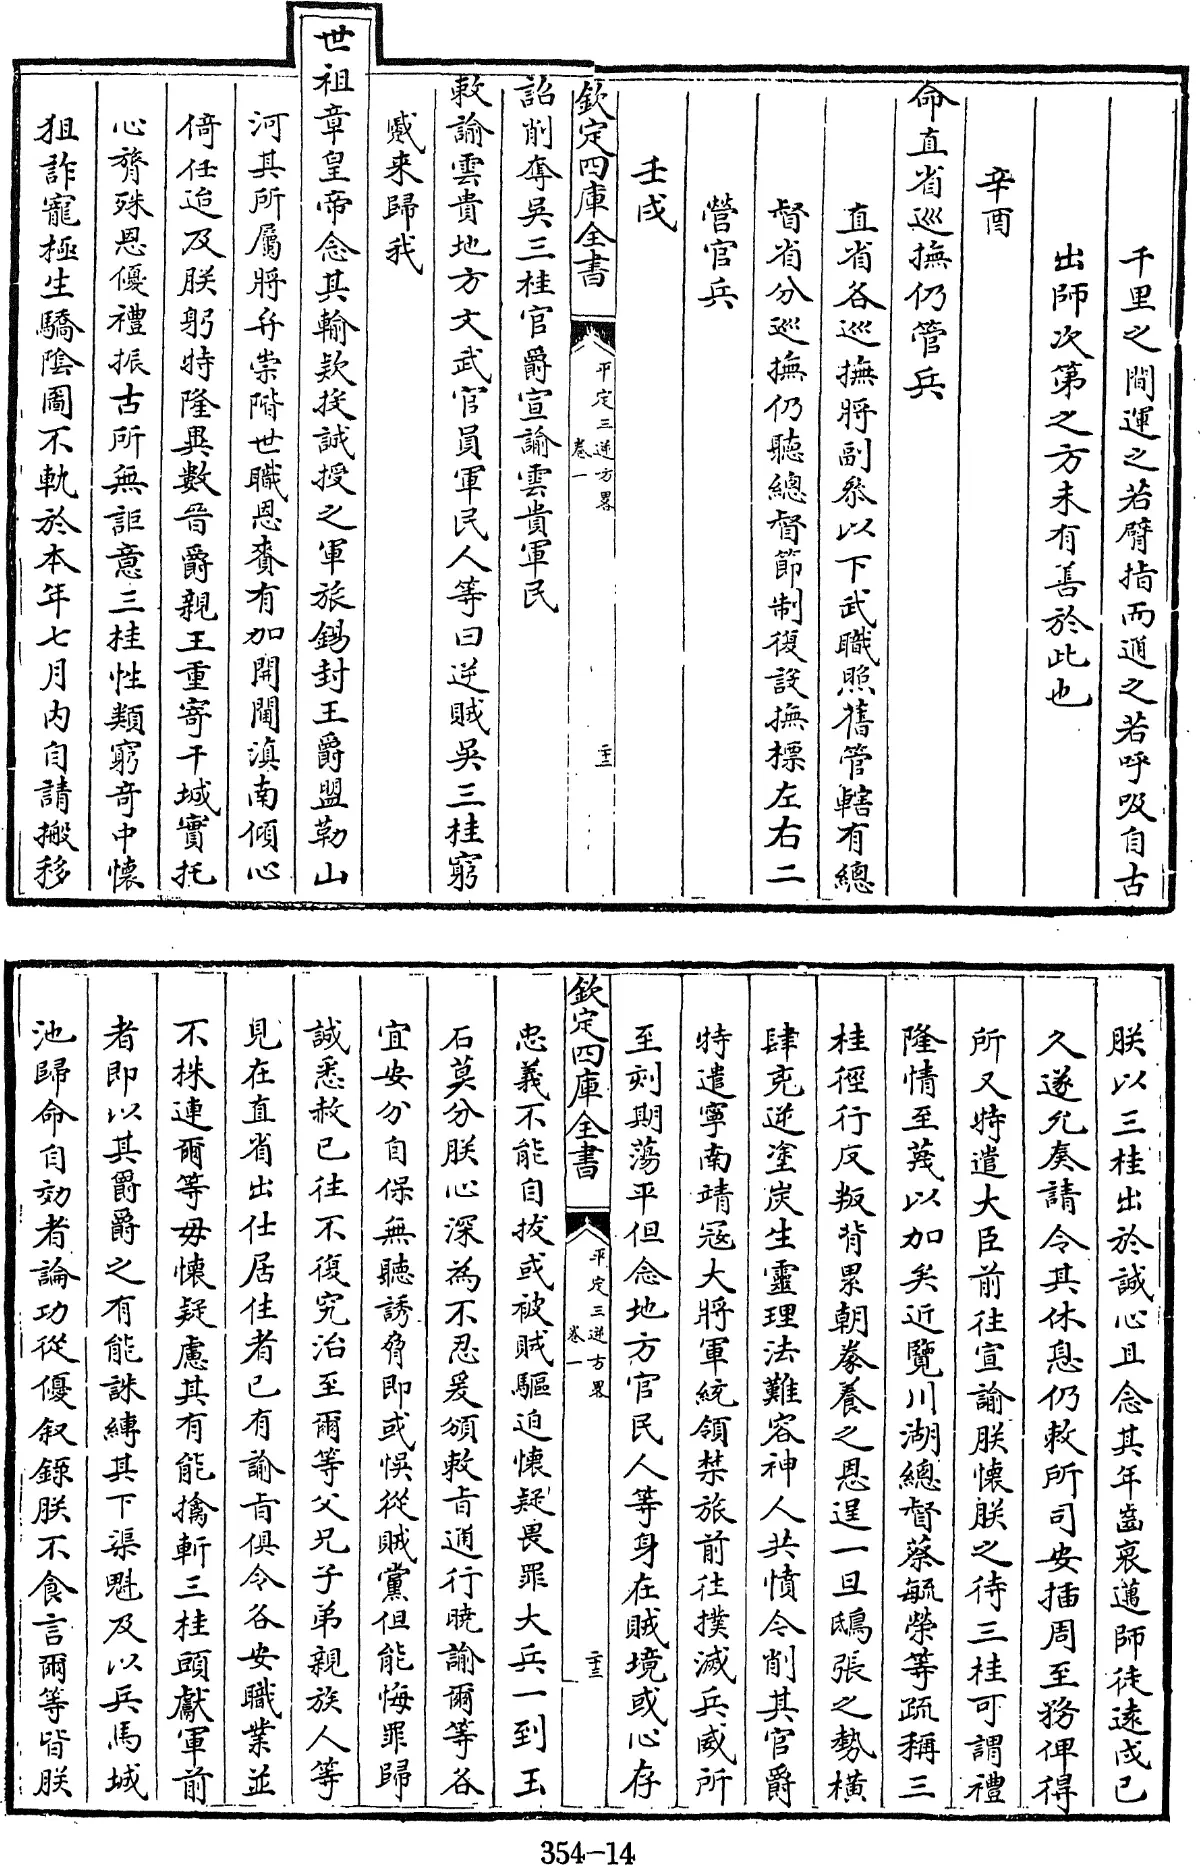 千里之間運之若臂指而通之若呼吸自古
出師次第之方未有善於此也
辛酉
命直省巡撫仍管兵
直省各巡撫將副叅以下武職照舊管轄有總
督省分巡撫仍聽總督節制復設撫標左右二
營官兵
壬戌
欽定四庫全書
平定三逆方畧
卷一
二十二
詔削奪吳三桂官爵宣諭雲貴軍民
敕諭雲貴地方文武官員軍民人等曰逆賊吳三桂窮
蹙来歸我
世祖章皇帝念其輸款投誠授之軍旅錫封王爵盟勒山
河其所屬將弁崇階世職恩賚有加開閫滇南傾心
倚任迨及朕躬特隆異數晉爵親王重寄干城實托
心膂殊恩優禮振古所無詎意三桂性類窮奇中懐
狙詐寵極生驕陰圖不軌於本年七月内自請搬移
朕以三桂出於誠心且念其年齒衰邁師徒遠戍已
久遂允奏請令其休息仍敕所司安插周至務俾得
所又特遣大臣前往宣諭朕懐朕之待三桂可謂禮
隆情至蔑以加矣近覽川湖總督蔡毓榮等疏稱三
桂徑行反叛背累朝豢養之恩逞一旦鴟張之勢橫
肆兇逆塗炭生靈理法難容神人共憤今削其官爵
特遣寧南靖寇大將軍統領禁旅前往撲滅兵威所
至刻期蕩平但念地方官民人等身在賊境或心存
欽定四庫全書
平定三逆方畧
卷一
二十三
忠義不能自拔或被賊驅迫懐疑畏罪大兵一到玉
石莫分朕心深為不忍爰頒敕㫖通行曉諭爾等各
宜安分自保無聽誘脅即或悞從賊黨但能悔罪歸
誠悉赦已往不復究治至爾等父兄子弟親族人等
見在直省出仕居住者已有諭㫖俱令各安職業並
不株連爾等毋懐疑慮其有能擒斬三桂頭獻軍前
者即以其爵爵之有能誅縛其下渠魁及以兵馬城
池歸命自効者論功從優叙錄朕不食言爾等皆朕
354-14